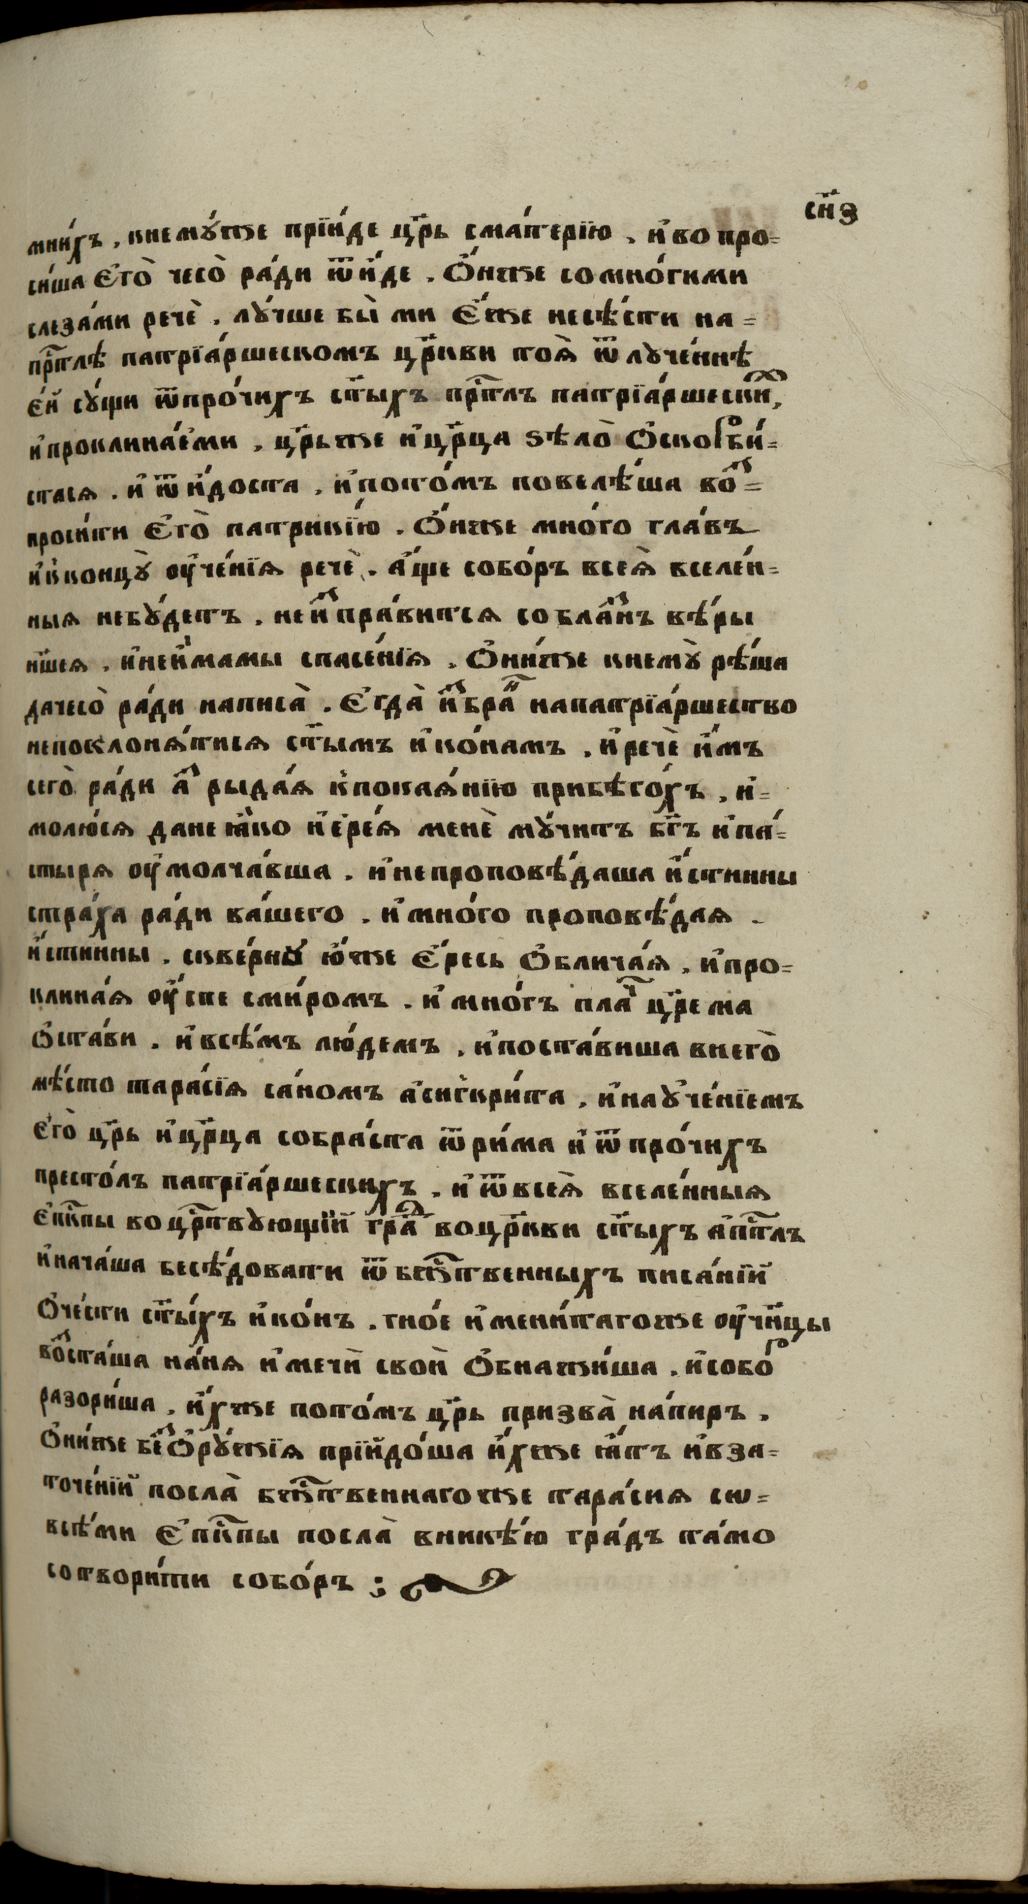 сн҃з
мни́хъ . кнему́же прїи́де цр҃ь сма́терїю . и҆ во про=
си́ша є҆го̀ чесо̀ ра́ди ѿи́де . ѻ҆́нже со мно́гими
слеза́ми речѐ . лу́чше бы̀ ми є҆́же несѣ́сти на=
прⷭ҇тлѣ патрїа́ршескомъ цр҃кви тоѧ̀ ѿлуче́ннѣ
є҆́й су́щи ѿпро́чихъ ст҃ыхъ прⷭ҇тлъ патрїа́ршескихⷯ,
и҆проклина́еми . цр҃ьже и҆цр҃ца ѕѣло̀ ѻ҆скорби́=
стасѧ . и҆ ѿи́доста . и҆пото́мъ повелѣ́ша воⷥ=
проси́ти є҆го̀ патрикі́ю . ѻ҆́нже мно́го гла́въ
и҆кконцу̀ ᲂу҆че́нїѧ речѐ . а҆́ще собо́ръ всеѧ̀ вселе́н=
ныѧ небу́детъ . неи҆ⷭ҇пра́витсѧ соблаⷥ҇нъ вѣ́ры
нш҃еѧ . и҆неи҆́мамы спасе́нїѧ . ѻ҆ни́же кнему̀ рѣ́ша
дачесо̀ ра́ди написа̀ . є҆гда̀ и҆ⷥбраⷩ҇ напатрїа́ршество
непоклонѧ́тисѧ ст҃ымъ и҆ко́намъ . и҆ речѐ и҆́мъ
сего̀ ра́ди а҆ⷥ рыда́ѧ кпокаѧ́нїю прибѣго́хъ . и҆=
молю́сѧ дане ꙗ҆́ко и҆ере́ѧ менѐ му́читъ бг҃ъ и҆па́=
стырѧ ᲂу҆молча́вша . и҆непроповѣ́даша и҆́стинны
стра́ха ра́ди ва́шего . и҆мно́го проповѣ́даѧ .
и҆́стинны . скве́рную́же є҆́ресь ѻ҆блича́ѧ . и҆про=
клина́ѧ ᲂу҆́спе сми́ромъ . и҆ мно́гъ плаⷱ҇ цр҃ема
ѻ҆ста́ви . и҆ всѣ́мъ лю́демъ . и҆поста́виша внего̀
мѣ́сто тара́сїѧ са́номъ а҆сигкри́та . и҆науче́нїемъ
є҆го̀ цр҃ь и҆цр҃ца собра́ста ѿри́ма и҆ ѿпро́чихъ
престо́лъ патрїа́ршескихъ . и҆ ѿвсеѧ̀ вселе́нныѧ
є҆пⷭ҇кпы во црⷭ҇твующїй граⷣ воцр҃кви ст҃ыхъ а҆пⷭ҇тлъ
и҆нача́ша бесѣ́довати ѿ бжⷭ҇твенныхъ писа́нїй
ѻ҆че́сти ст҃ы́хъ и҆ко́нъ . гно́е и҆мени́тагоже ᲂу҆чн҃цы
воⷥста́ша на́нѧ и҆ мечи̑ своѝ ѻ҆бнажи́ша . и҆собоⷬ
разори́ша . и҆́хже пото́мъ цр҃ь призва̀ на́пиръ .
ѻ҆ни́же беⷥ ѻ҆ру́жїѧ прїидо́ша и҆́хже ꙗ҆́тъ и҆вза=
точе́нїй посла̀ бжⷭ҇твеннагоже тара́сиѧ сѡ=
всѣ́ми є҆пⷭ҇кпы посла̀ вникѣ́ю гра́дъ та́мо
сотвори́ти собо́ръ ;